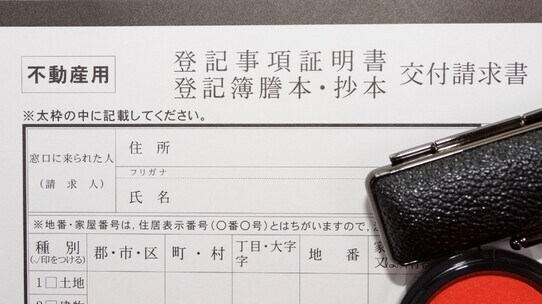 不動産用
登記事項証明書
登記簿謄本・抄本
交付請求書
※太枠の中に記載してください。
窓口に来られた人
(請求人)
住所
フリガナ
氏名
※地番・家屋番号は、住居表示番号(〇番〇号)とはちがいますので、
種別
(✓印をつける)
郡・市・区
町・村
丁目・大字
字
地番
家
又
1□土地
2□建物